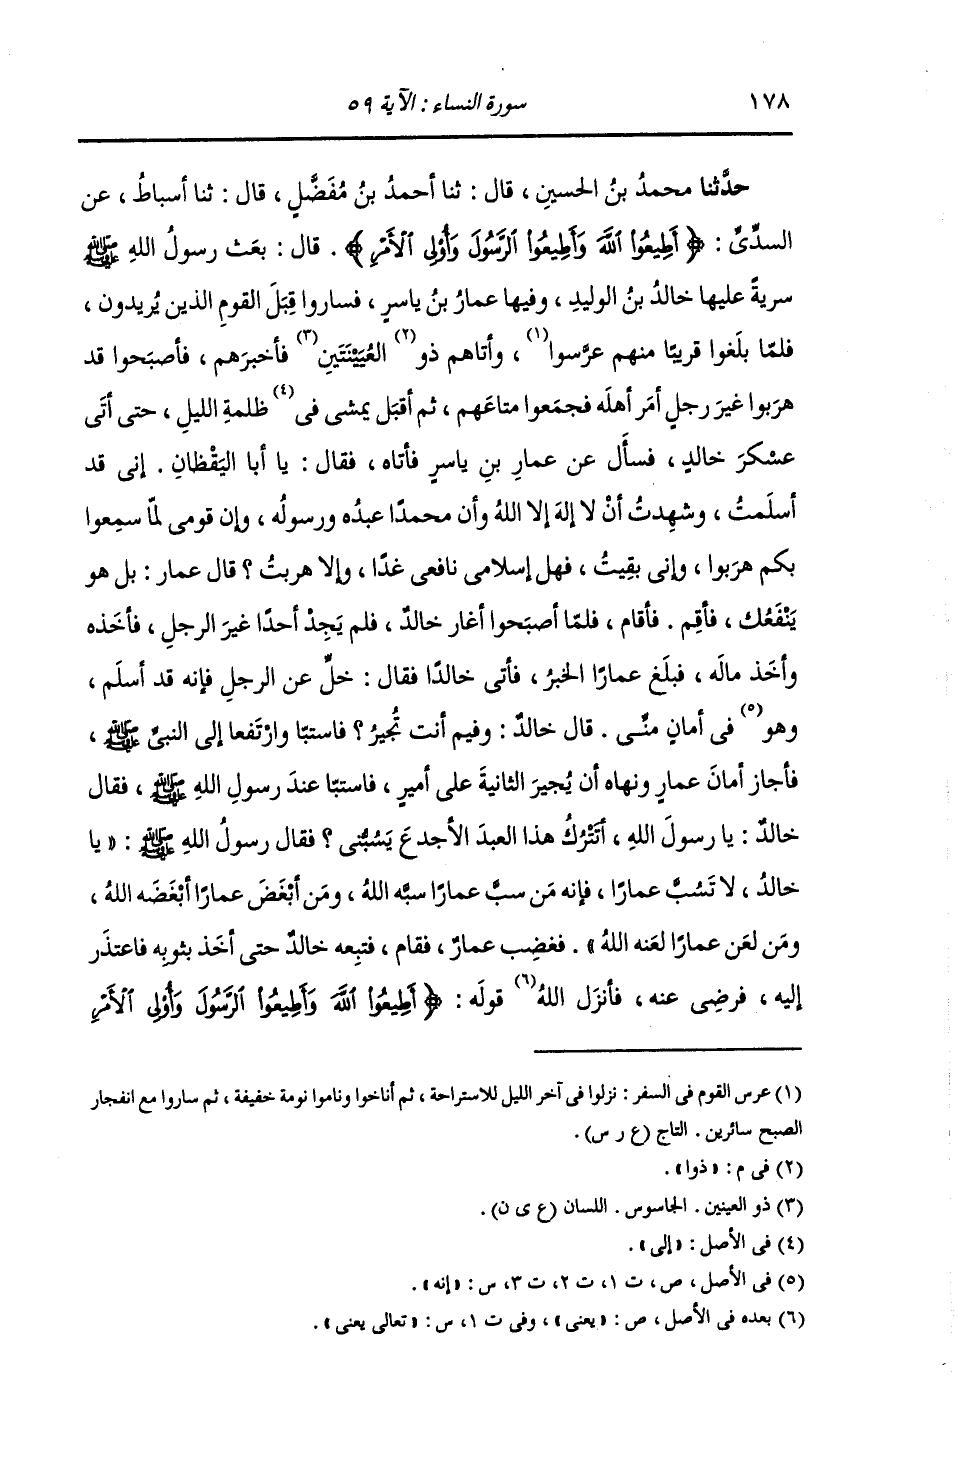 ١٧٨ سورة النساء : الآية ٥٩
حدَّثنا محمدُ بنُ الحسينِ ، قال : ثنا أحمدُ بنُ مُفَضَّلٍ ، قال : ثنا أسباطُ ، عن
السدِّىِّ : ﴿ أَطِيعُوا۟ ٱللَّهَ وَأَطِيعُوا۟ ٱلرَّسُولَ وَأُو۟لِى ٱلْأَمْرِ ﴾ . قال : بعَث رسولُ اللهِ ﷺ
سريةً عليها خالدُ بنُ الوليدِ ، وفيها عمارُ بنُ ياسرٍ ، فساروا قِبَلَ القومِ الذين يُريدون ،
فلمّا بلَغوا قريبًا منهم عرَّسوا(١) ، وأتاهم ذو(٢) العُيَيْنَتَينِ(٣) فأخبرَهم ، فأصبَحوا قد
هرَبوا غيرَ رجلٍ أمَر أهلَه فجمَعوا متاعَهم ، ثم أقبَل يمشى فى(٤) ظلمةِ الليلِ ، حتى أتَى
عسْكرَ خالدٍ ، فسأَل عن عمارِ بنِ ياسرٍ فأتاه ، فقال : يا أبا اليَقْظانِ . إنى قد
أسلَمتُ ، وشهِدتُ أنْ لا إلهَ إلا اللهُ وأن محمدًا عبدُه ورسولُه ، وإن قومى لمّا سمِعوا
بكم هرَبوا ، وإنى بقِيتُ ، فهل إسلامى نافعى غدًا ، وإلا هربتُ ؟ قال عمار : بل هو
يَنْفَعُك ، فأقِم . فأقام ، فلمّا أصبَحوا أغار خالدٌ ، فلم يَجِدْ أحدًا غيرَ الرجلِ ، فأخَذه
وأخَذ مالَه ، فبلَغ عمارًا الخبرُ ، فأتى خالدًا فقال : خلِّ عن الرجلِ فإنه قد أسلَم ،
وهو(٥) فى أمانٍ منِّى . قال خالدٌ : وفيم أنت تُجيرُ ؟ فاستبّا وارْتَفعا إلى النبىِّ ﷺ ،
فأجاز أمانَ عمارٍ ونهاه أن يُجيرَ الثانيةَ على أميرٍ ، فاستبّا عندَ رسولِ اللهِ ﷺ ، فقال
خالدٌ : يا رسولَ اللهِ ، أتَتْرُكُ هذا العبدَ الأجدعَ يَسُبُّنى ؟ فقال رسولُ اللهِ ﷺ : « يا
خالدُ ، لا تَسُبَّ عمارًا ، فإنه مَن سبَّ عمارًا سبَّه اللهُ ، ومَن أبْغَضَ عمارًا أبْغَضَه اللهُ ،
ومَن لعَن عمارًا لعَنه اللهُ » . فغضِب عمارٌ ، فقام ، فتبِعه خالدٌ حتى أخَذ بثوبِه فاعتذَر
إليه ، فرضِى عنه ، فأنزَل اللهُ(٦) قولَه : ﴿ أَطِيعُوا۟ ٱللَّهَ وَأَطِيعُوا۟ ٱلرَّسُولَ وَأُو۟لِى ٱلْأَمْرِ
(١) عرس القوم فى السفر : نزلوا فى آخر الليل للاستراحة ، ثم أناخوا وناموا نومة خفيفة ، ثم ساروا مع انفجار
الصبح سائرين . التاج (ع ر س) .
(٢) فى م : « ذوا » .
(٣) ذو العينين . الجاسوس . اللسان (ع ى ن) .
(٤) فى الأصل : « إلى » .
(٥) فى الأصل ، ص ، ت ١، ت ٢، ت ٣، س : « إنه » .
(٦) بعده فى الأصل ، ص : « يعنى » ، وفى ت ١، س : « تعالى يعنى » .